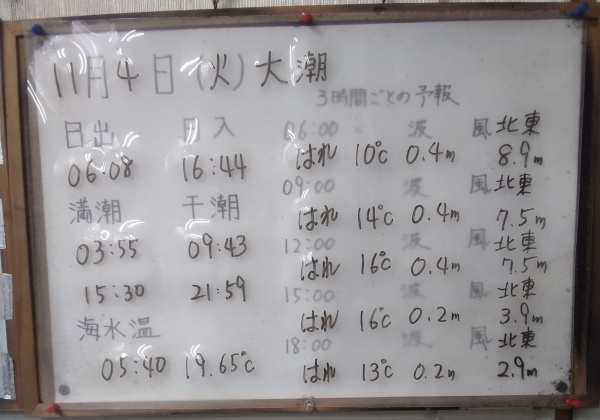 11月4日(火)大潮
3時間ごとの予報
日出 日入
06:08 16:44
満潮 干潮
03:55 09:43
15:30 21:59
海水温
05:40 19.65℃
06:00 波 風 北東
はれ 10℃ 0.4m 8.9m
09:00 波 風 北東
はれ 14℃ 0.4m 7.5m
12:00 波 風 北東
はれ 16℃ 0.4m 7.5m
15:00 波 風 北東
はれ 16℃ 0.2m 3.9m
18:00 波 風 北東
はれ 13℃ 0.2m 2.9m